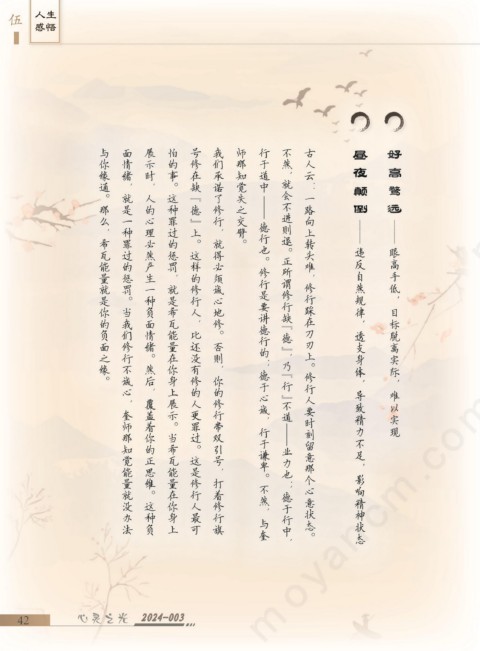 伍
人生
感悟
好高骛远——眼高手低，目标脱离实际，难以实现
昼夜颠倒——违反自然规律，透支身体，导致精力不足，影响精神状态
古人云：一路向上转头难，修行踩在刀刃上。修行人要时刻留意那个心意状态。
不然，就会不进则退。正所谓修行缺『德』，乃『行』不道——业力也；德于行中，
行于道中——德行也。修行是要讲德行的，德于心诚，行于谦卑。不然，与奎
师那知觉失之交臂。
我们承诺了修行，就得必须诚心地修。否则，你的修行带双引号，打着修行旗
号修在缺『德』上。这样的修行人，比还没有修的人更罪过。这是修行人最可
怕的事。这种罪过的惩罚，就是希瓦能量在你身上展示。当希瓦能量在你身上
展示时，人的心理必然产生一种负面情绪。然后，覆盖着你的正思维。这种负
面情绪，就是一种罪过的惩罚。当我们修行不诚心，奎师那知觉能量就没办法
与你缘通。那么，希瓦能量就是你的负面之缘。
42
心灵之光
2024-003
moyancm.com